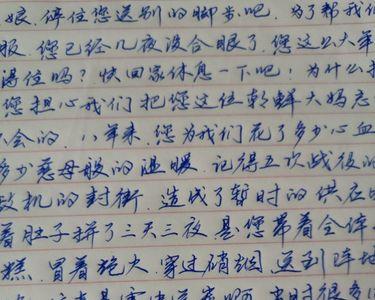 娘，停住您送别的脚步吧，为了帮我们
服，您已经几夜没合眼了，您这么大年
得住吗？快回家休息一下吧！为什么
您担心我们把您这位朝鲜大妈忘
不会的，八年来，您为我们花了多少心血
多少慈母般的温暖，记得五次战役的
敌机的封锁，造成了暂时的供应
着肚子拼了三天三夜，是您带着全体
糕，冒着炮火，穿过硝烟，送到阵地